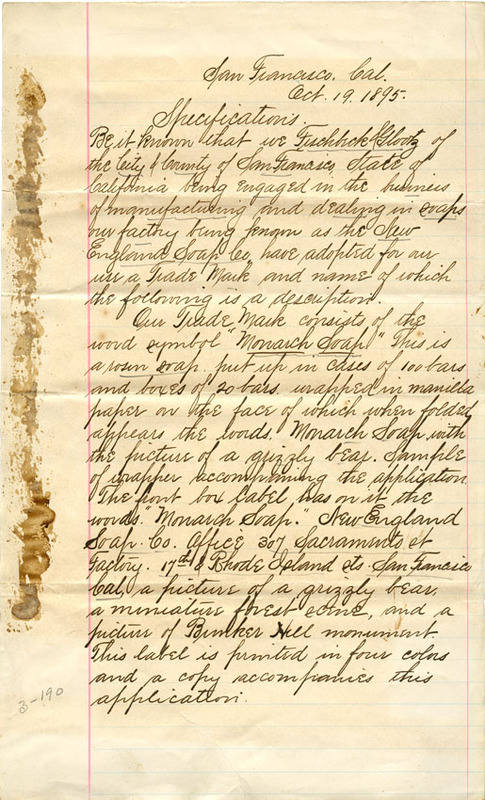 San Francisco, Cal.
Oct. 19. 1895.
Specifications.
Be it known that we Fischbeck & Glootz of
the City & County of San Francisco, State of
California being engaged in the business
of manufacturing and dealing in soaps
our factory being known as the New
England Soap Co, have adopted for our
use a Trade Mark and name of which
the following is a description.
Our Trade Mark consists of the
word symbol "Monarch Soap." This is
a rosin soap put up in cases of 100 bars
and boxes of 20 bars wrapped in manilla
paper on the face of which when folded
appears the words. Monarch Soap with
the picture of a grizzly bear. Sample
of wrapper accompanies the application
The front box label has on it the
words "Monarch Soap." New England
Soap. Co. Office 307 Sacramento st
Factory. 17th & Rhode Island sts San Francisco
Cal, a picture of a grizzly bear,
a miniature forest scene, and a
picture of Bunker Hill monument.
This label is printed in four colors
and a copy accompanies this
application.
3-190